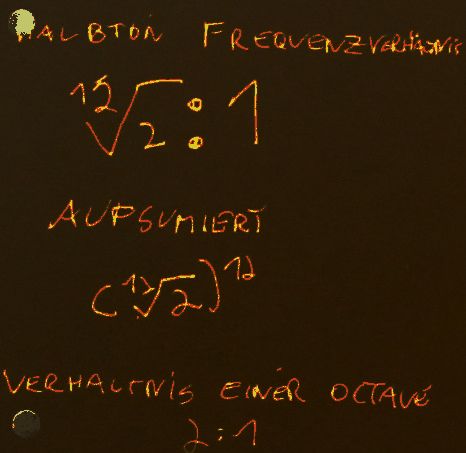 HALBTON FREQUENZVERHÄLTNIS
¹²√2 : 1
AUFSUMIERT
(¹²√2)¹²
VERHALTNIS EINER OCTAVE
2:1